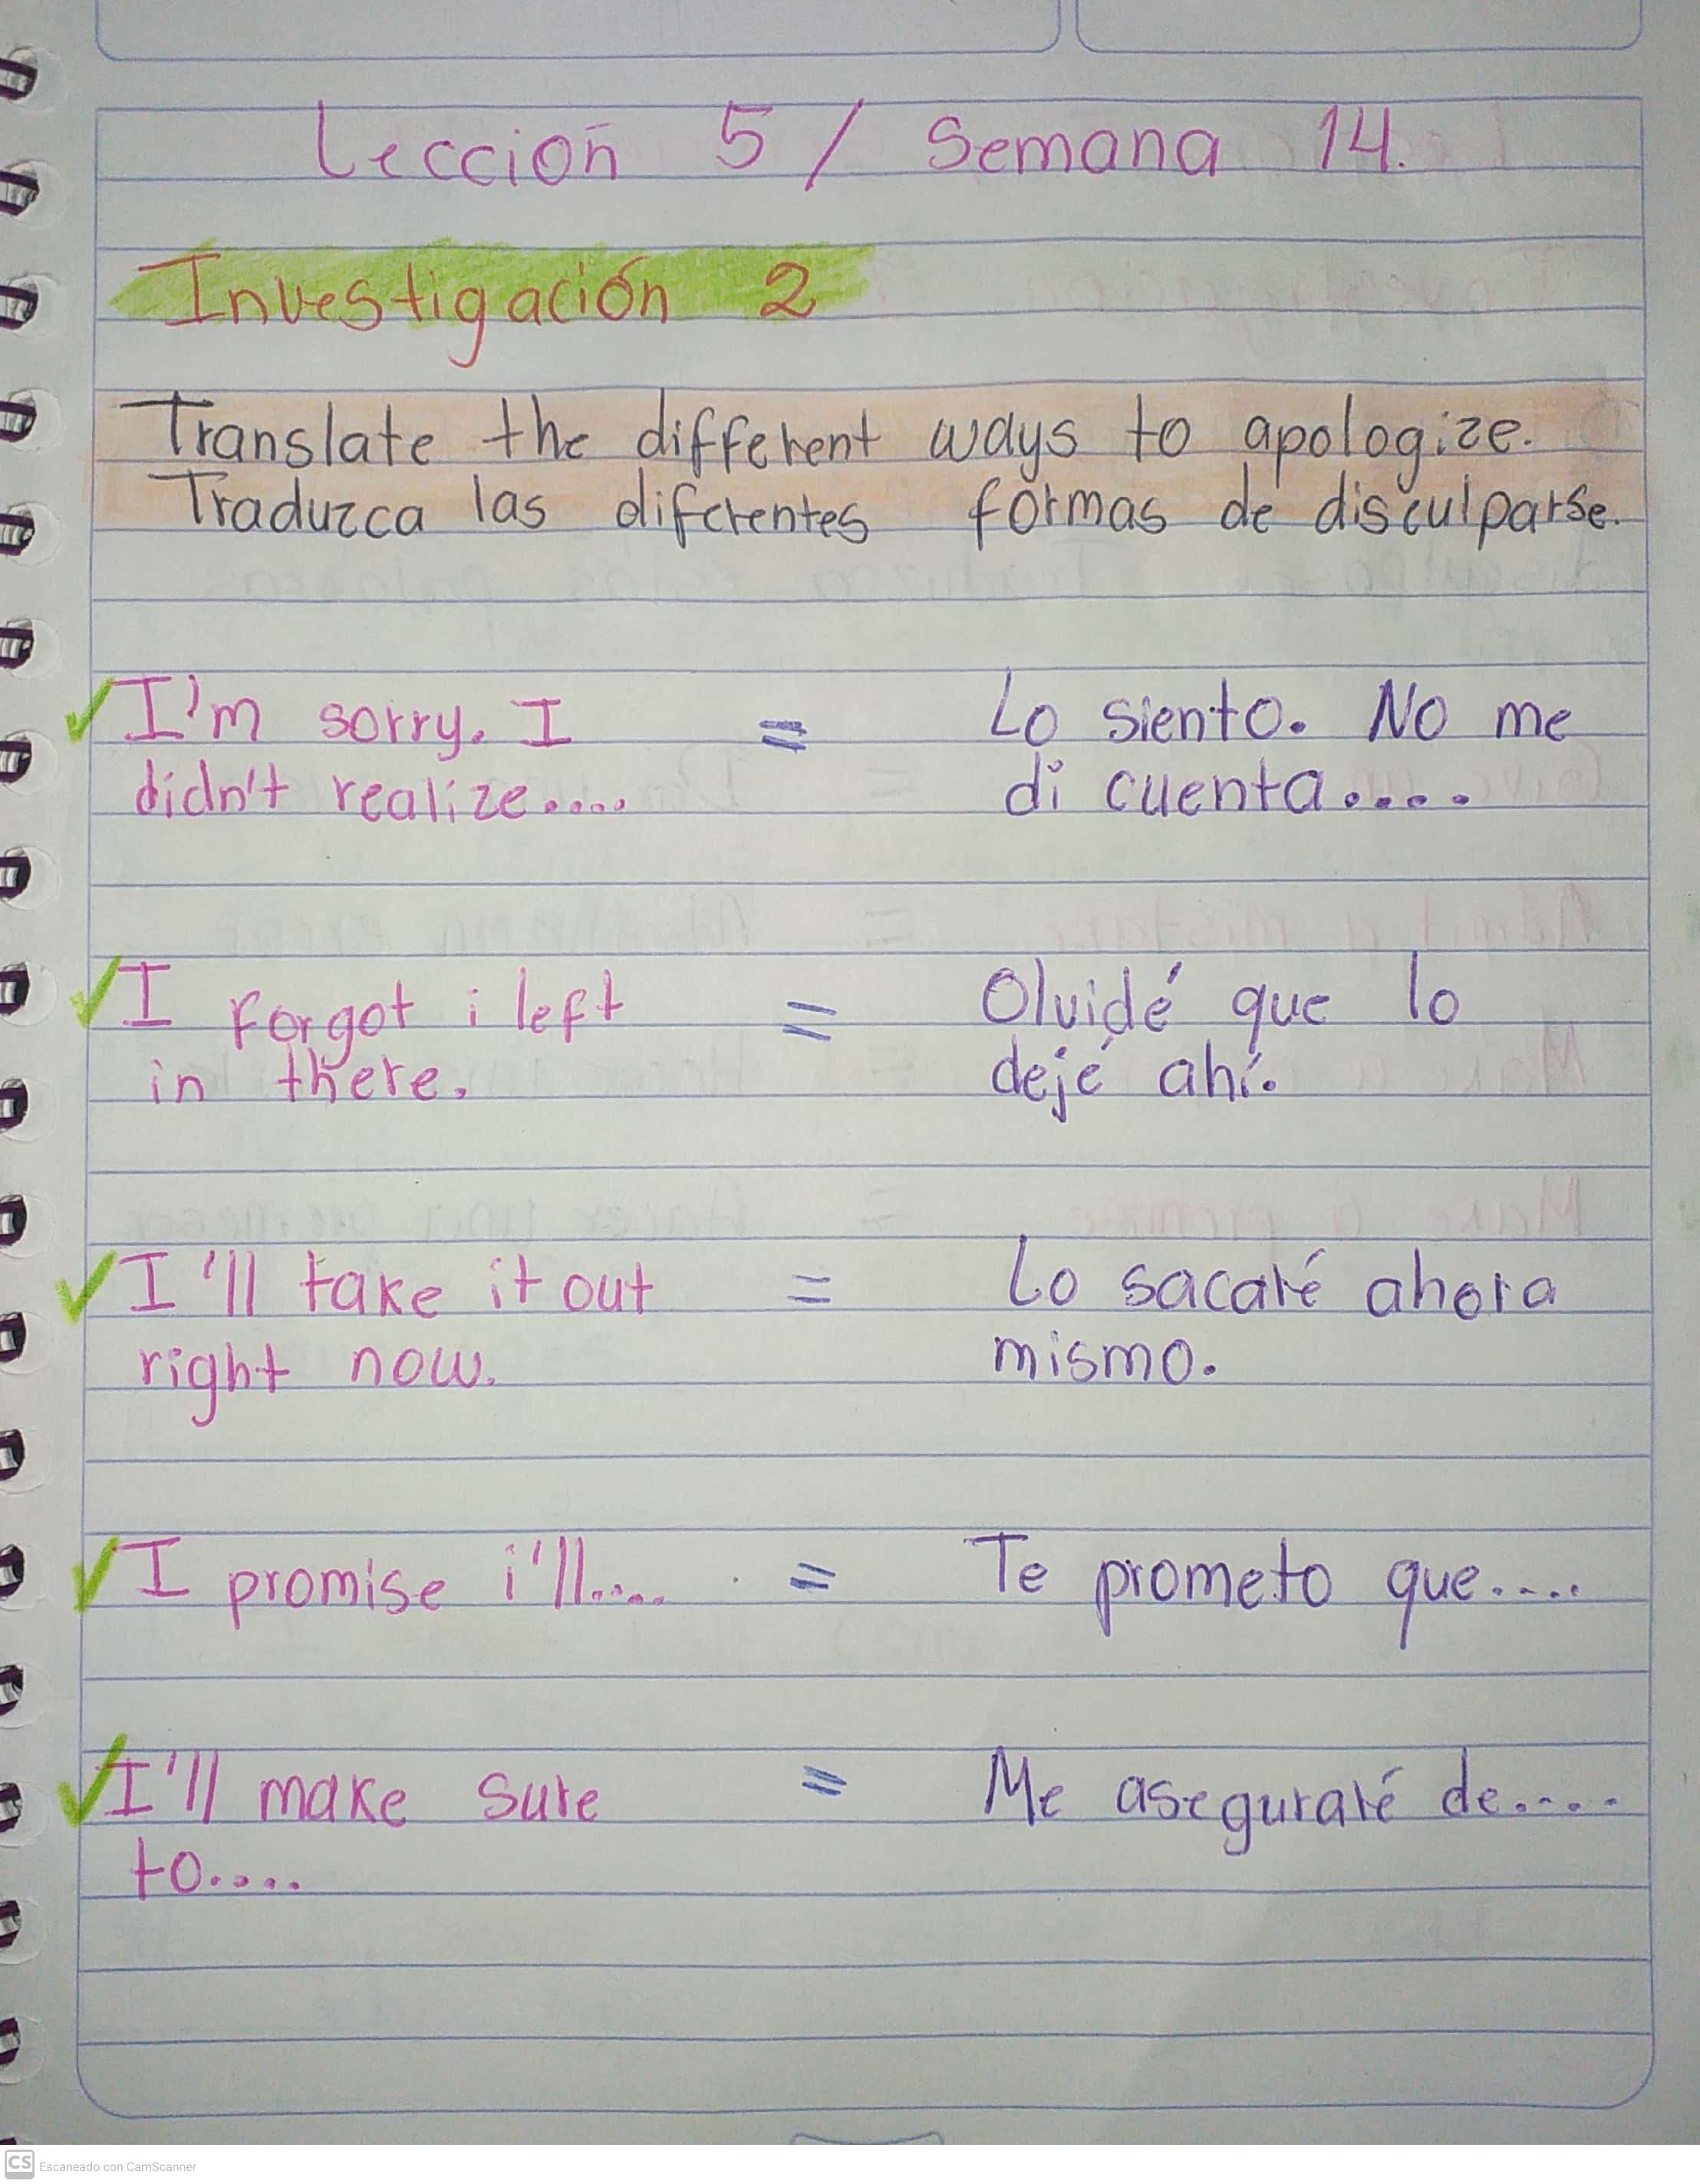 Lección 5 / Semana 14.
Investigación 2
Translate the different ways to apologize.
Traduzca las diferentes formas de disculparse.
I'm sorry. I = Lo siento. No me
didn't realize.... di cuenta....
I forgot i left = Olvidé que lo
in there. dejé ahí.
I'll take it out = Lo sacaré ahora
right now. mismo.
I promise i'll.... = Te prometo que....
I'll make sure = Me aseguraré de....
to....
CS Escaneado con CamScanner